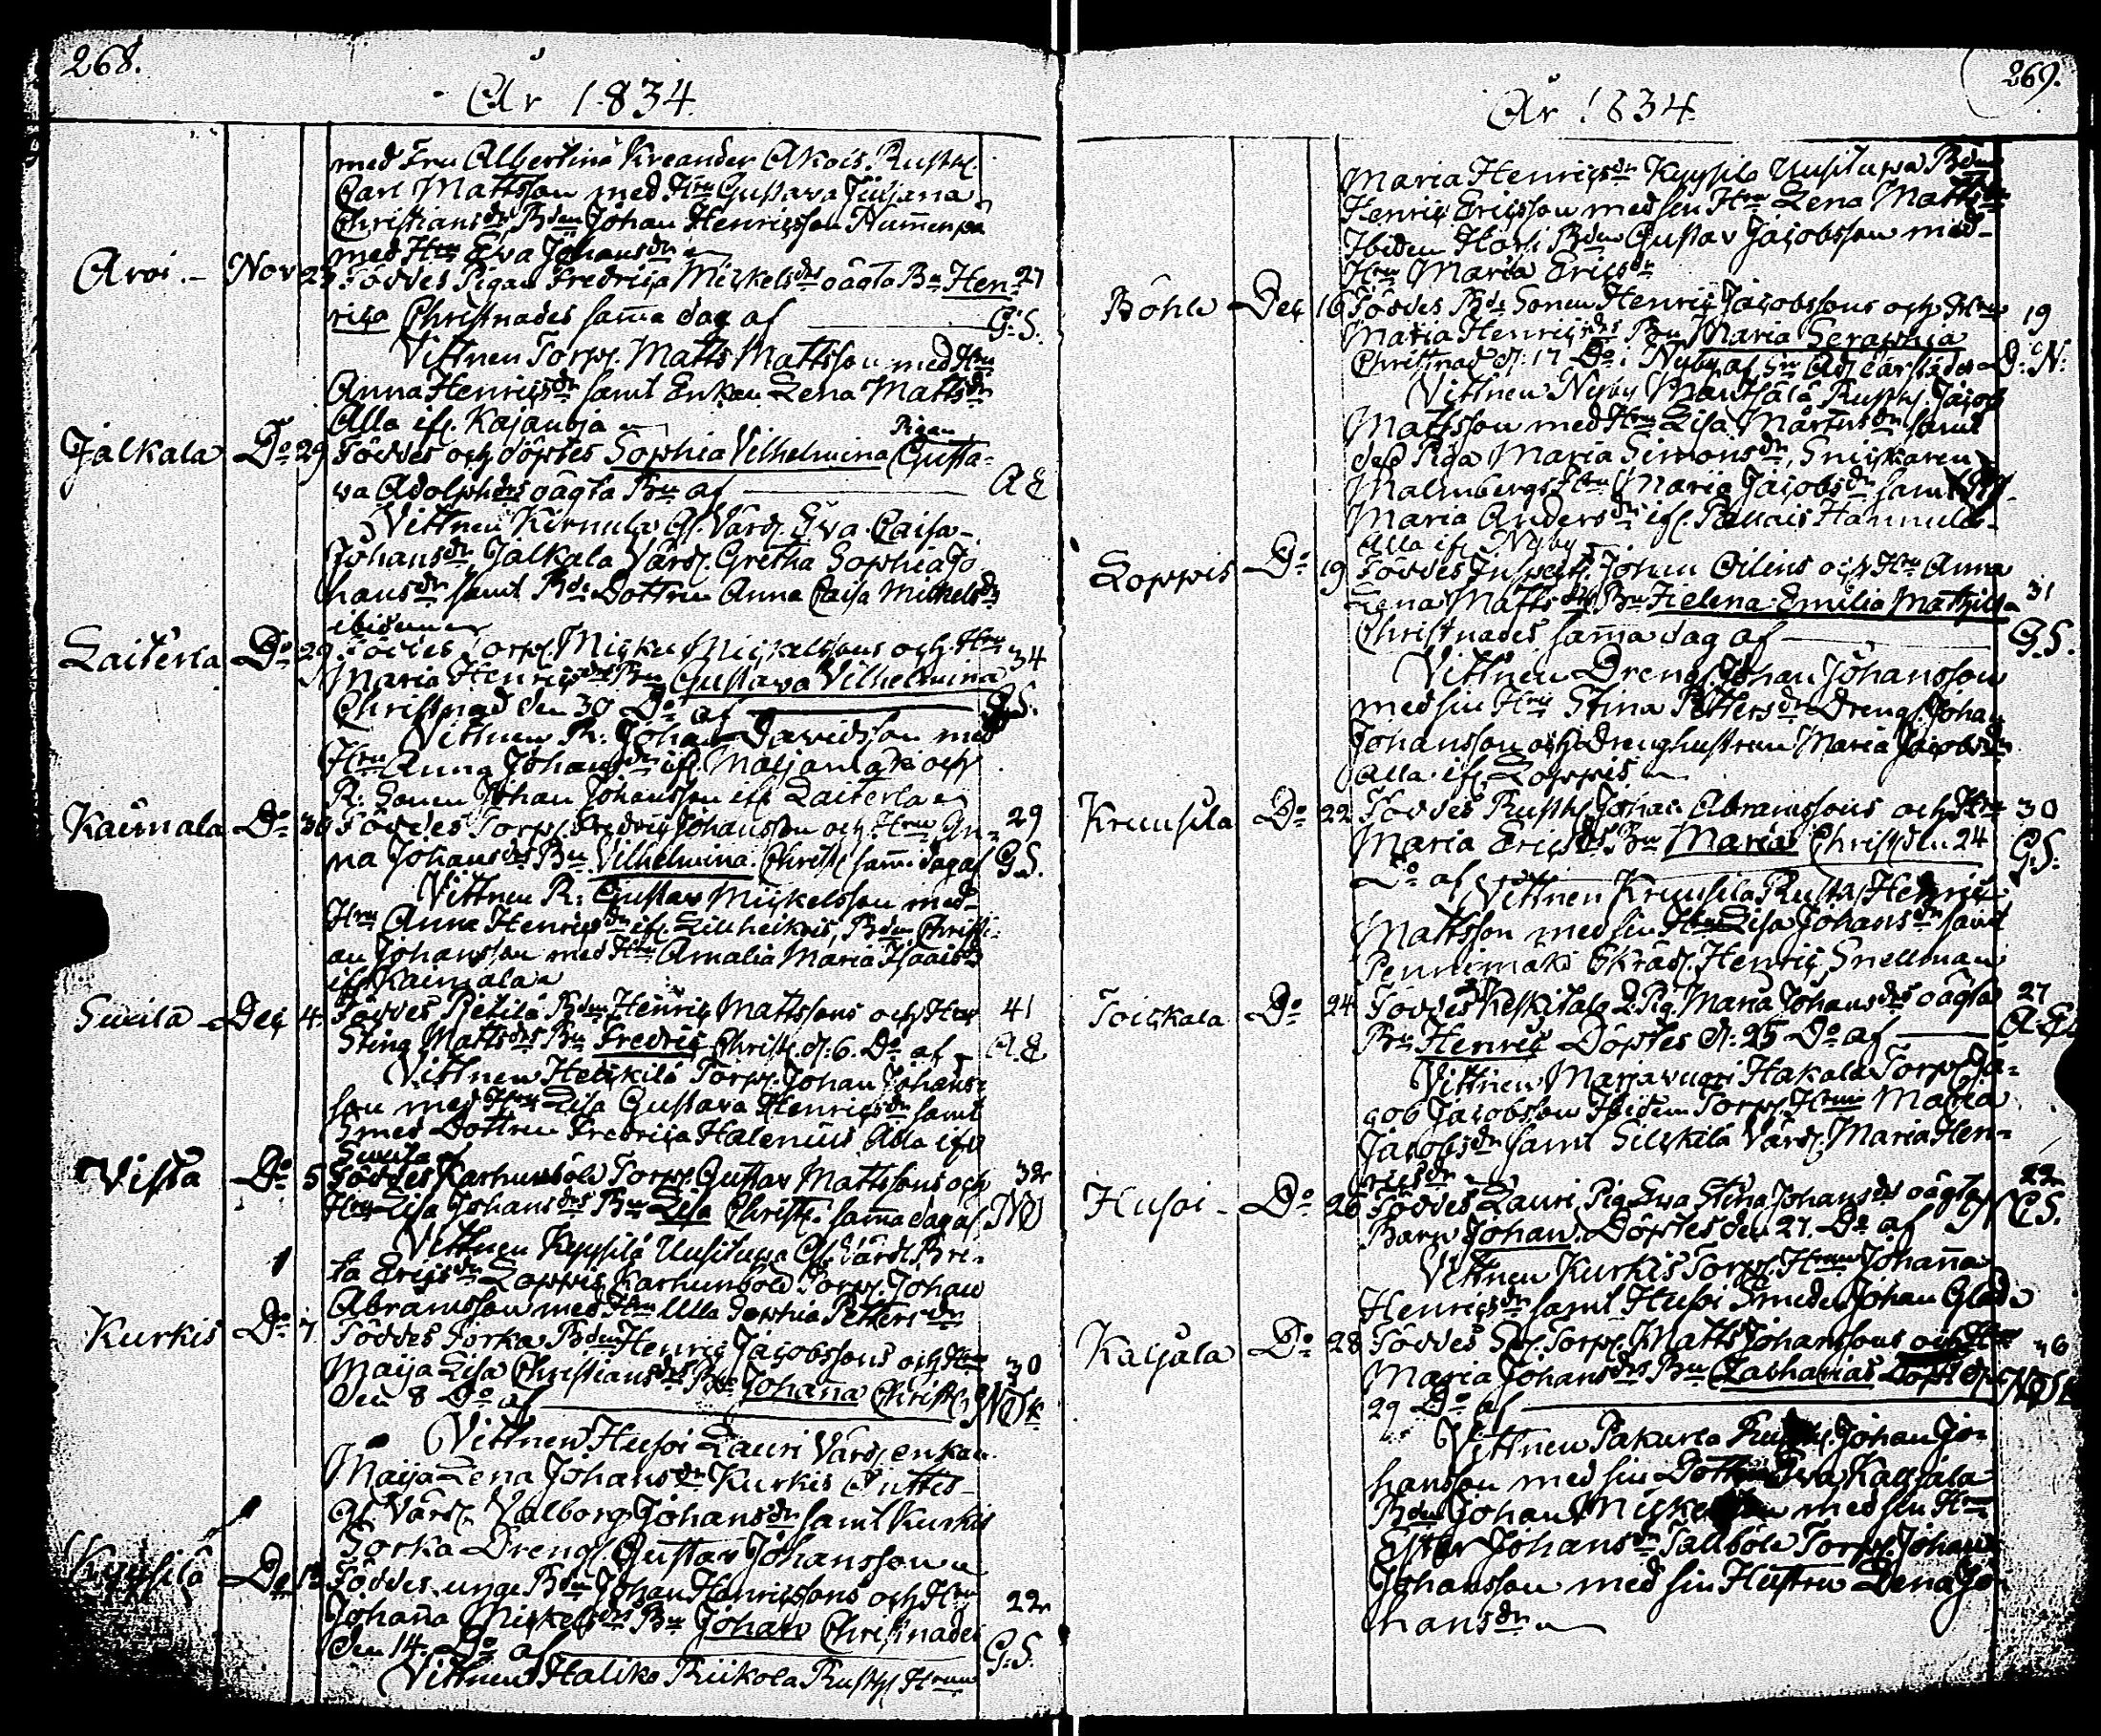 268.
År 1834.
med Fru Albertina Kreander Akois Rusth.
Carl Mattsson med Hru Gustava Juljana
Christiansdr, Bdn Johan Henricsson Hummenpä
med Hru Eva Johansdr
Aroi Nov 23 Föddes Pigan Fredrica Mickelsdrs oägta Bn Hen- 27
rica Christnades samma dag af G.S.
Vittnen Torp. Matts Mattsson med Hru
Anna Henricsdr samt Enkan Lena Mattsdr
Alla ifr. Kajanoja
Jalkala Do 29 Föddes och döptes Sophia Vilhelmina Pigan Gusta-
va Adolphdrs oägta Bn af A E
Vittnen Kirmula Gl. Värd. Eva Caisa
Johansdr, Jalkala Värd. Gretha Sophia Jo-
hansdr samt Bde Dottren Anna Caisa Michelsdr
ibidem
Laiterla Do 29 Föddes Torp. Mickel Mickelssons och Hru 34
Maria Henricsdrs Bn Gustava Vilhelmina
Christnad den 30 Do af G.S.
Vittnen R. Johan Davidsson med
Hru Anna Johansdr ifr. och
R: Sonen Johan Johansson ifr Laiterla
Kaimala Do 30 Föddes Torp. Fredric Johansson och Hru An- 29
na Johansdrs Bn Vilhelmina. Christ. sam. dag af G.S.
Vittnen R: Gustav Mickelsson med
Hru Anna Henricsdr ifr. Lillheikois, Bdn Christi-
an Johansson med Hru Amalia Maria Isaacsdr
ifr Kaimala
Suuila Dec 4 Föddes Pietilä Bdn Henric Mattssons och Hru 41
Stina Mattsdrs Bn Fredric Christ. d. 6. Do af A.E
Vittnen Heickilä Torp. Johan Johans-
son med Hru Lisa Gustava Henricsdr samt
Smed Dottren Fredrica Halenius Alla ifr
Suuila
Vista Do 5 Föddes Karhunböle Torp. Gustav Mattssons och 32
Hru Lisa Johansdrs Bn Lisa Christ. samma dag af NO
Vittnen Kyysilä Uusitupa Gl. Värd. Bri-
ta Ericsdr Loppis Karhunböle Torp. Johan
Abramsson med Hru Ulla Sophia Pettersdr
Kurkis Do 7 Föddes Sorka Bdn Henric Jacobssons och Hru 30
Maija Lisa Christiansdrs Bn Johanna Christ.
den 8 Do af
Vittnen Husoi Lauri Värd. enkan
Maija Lena Johansdr Kurkis
Gl Värd. Valborg Johansdr samt Kurkis
Sorka Dreng. Gustav Johansson
Kyysilä Do Föddes unge Bdn Johan Henricssons och Hru 22
Johanna Mickelsdrs Bn Johan Christnades
den 14. Do af G.S.
Vittnen Haliko Riikola Rusth Hrun
269.
År 1834.
Maria Henricsdr Kyysilä Uusitupa Bdn
Henric Ericsson med sin Hru Lena Mattsdr
Ibidem Bdn Gustav Jacobsson med
Hru Maria Ericsdr
Böhle Dec 16 Föddes Bde Sonen Henric Jacobssons och Hru 19
Maria Henricsdrs Bn Maria Seraphia
Christnad d. 17 Do i Nyby af D.N.
Vittnen Nyby Mantsälä Rusth. Jacob
Mattsson med Hru Lisa Mårtensdr samt
dess Piga Maria Simonsdr, Snickaren
Malmbergs Hru Maria Jacobsdr samt
Maria Andersdr ifr. Hannula
Alla ifr. Nyby
Loppis Do 19 Föddes Inspect. Johan Oilins och Hru Anna
Lena Mattsdrs Bn Helena Emilia Mathilda 31
Christnades samma dag af G.S.
Vittnen Dreng. Johan Johansson
med sin Hru Stina Pettersdr Dreng. Johan
Johansson och Drenghustrun Maria Jacobsdr
Alla ifr. Loppis
Kruusila Do 22 Föddes Rusth. Johan Abramssons och Hru 30
Maria Ericsdrs Bn Maria Christ. den 24 G.S.
Do af Vittnen Kruusila Rusth. Henric
Mattsson med sin Hru Lisa Johansdr samt
Pennimäki Skräd. Henric Snellman
Toickala Do 24 Föddes Keskitalo Pig. Maria Johansdrs oägta 27
Bn Henric Döptes d. 25 Do af A.E.
Vittnen Marjavuori Hakala Torp. Ja-
cob Jacobsson Ibidem Torp. Hrun Maria
Jacobsdr samt Silckilä Värd. Maria Hen-
ricsdr
Husoi Do 26 Föddes Lauri Pig. Eva Stina Johansdrs oägta 22
Barn Johan. Döptes den 27. Do af
Vittnen Kurkis Torp. Hrun Johanna
Henricsdr samt Husoi Smeden Johan Glad
Kaijala Do 28 Föddes Torp. Matts Johanssons och Hru 36
Maria Johansdrs Bn Zacharias Döpt d.
29 Do af
Vittnen Pakurla Johan Jo-
hansson med sin Dotter Eva Kaijala
Bdn Johan Mickelsson med sin Hru
Ester Johansdr Tallböle Torp. Johan
Johansson med sin Hustru Lena Jo-
hansdr